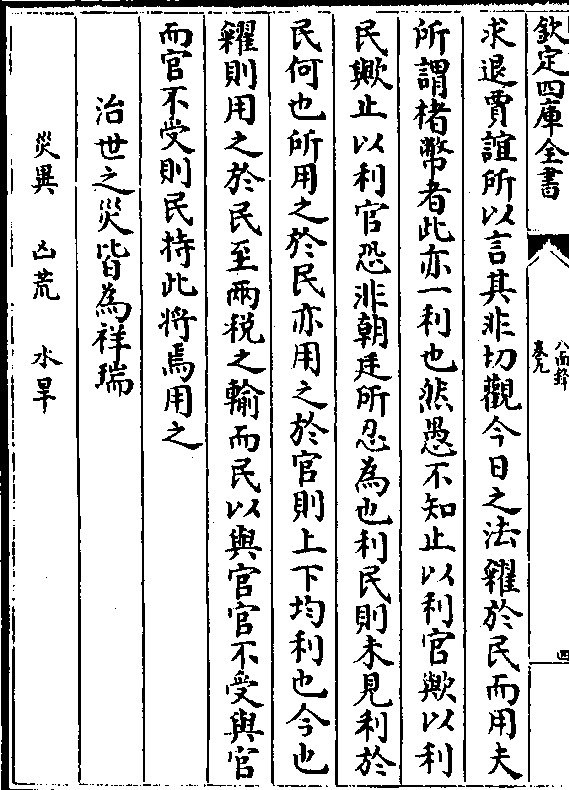 欽定四庫全書
八面鋒
卷九
四
求退賈誼所以言其非切觀今日之法糴於民而用夫
所謂楮幣者此亦一利也然愚不知止以利官歟以利
民歟止以利官恐非朝廷所忍為也利民則未見利於
民何也所用之於民亦用之於官則上下均利也今也
糴則用之於民至兩税之輸而民以與官官不受與官
而官不受則民持此將焉用之
治世之災皆為祥瑞
災異 凶荒 水旱